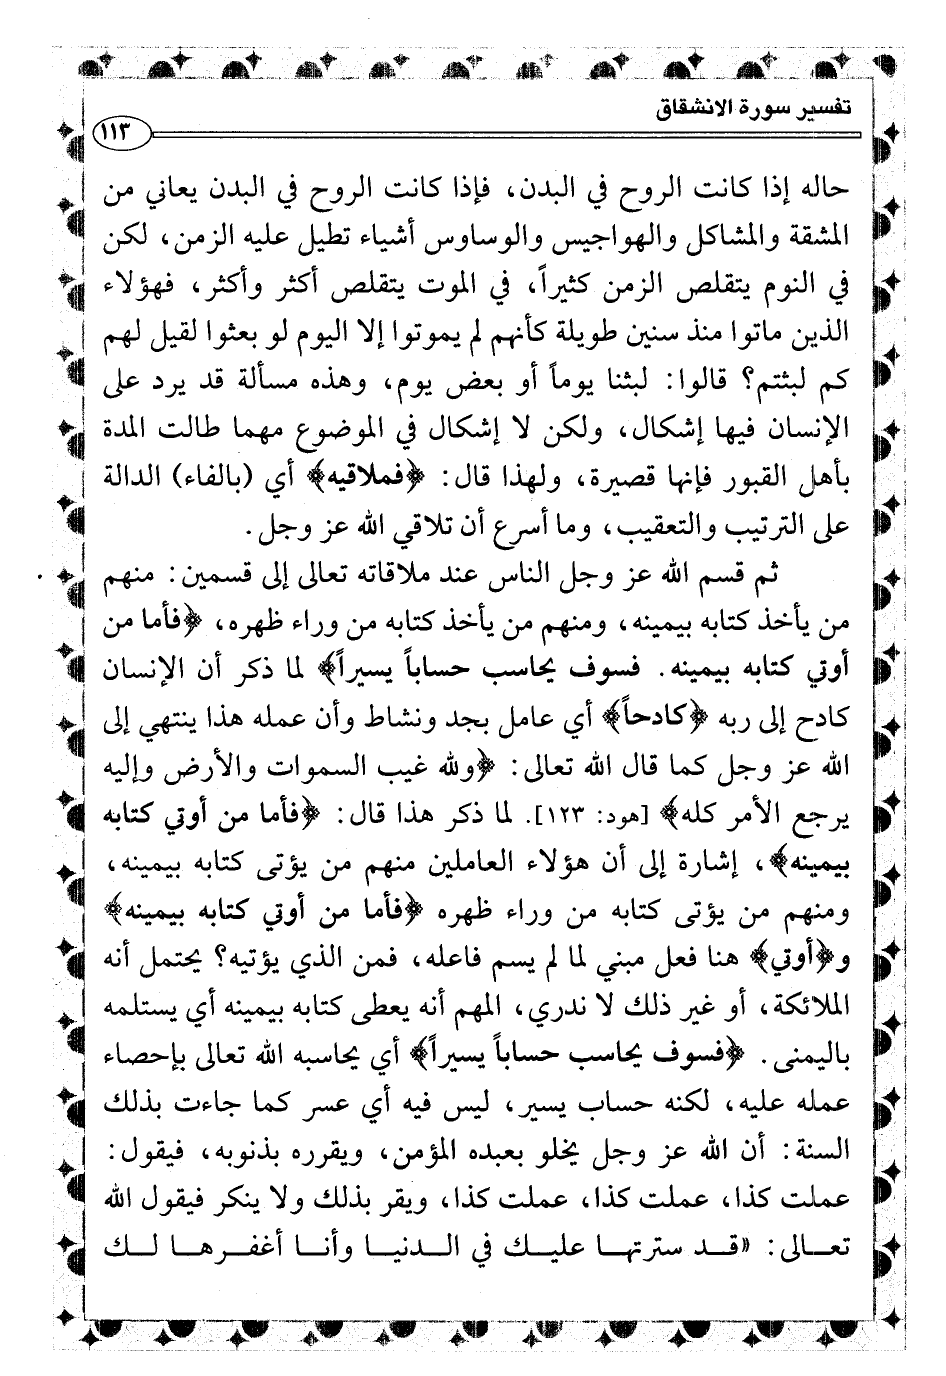 تفسير سورة الانشقاق
١١٣
حاله إذا كانت الروح في البدن، فإذا كانت الروح في البدن يعاني من
المشقة والمشاكل والهواجيس والوساوس أشياء تطيل عليه الزمن، لكن
في النوم يتقلص الزمن كثيراً، في الموت يتقلص أكثر وأكثر، فهؤلاء
الذين ماتوا منذ سنين طويلة كأنهم لم يموتوا إلا اليوم لو بعثوا لقيل لهم
كم لبثتم؟ قالوا: لبثنا يوماً أو بعض يوم، وهذه مسألة قد يرد على
الإنسان فيها إشكال، ولكن لا إشكال في الموضوع مهما طالت المدة
بأهل القبور فإنها قصيرة، ولهذا قال: ﴿فملاقيه﴾ أي (بالفاء) الدالة
على الترتيب والتعقيب، وما أسرع أن تلاقي الله عز وجل.
ثم قسم الله عز وجل الناس عند ملاقاته تعالى إلى قسمين: منهم
من يأخذ كتابه بيمينه، ومنهم من يأخذ كتابه من وراء ظهره، ﴿فأما من
أوتي كتابه بيمينه. فسوف يحاسب حساباً يسيراً﴾ لما ذكر أن الإنسان
كادح إلى ربه ﴿كادحاً﴾ أي عامل بجد ونشاط وأن عمله هذا ينتهي إلى
الله عز وجل كما قال الله تعالى: ﴿ولله غيب السموات والأرض وإليه
يرجع الأمر كله﴾ [هود: ١٢٣]. لما ذكر هذا قال: ﴿فأما من أوتي كتابه
بيمينه﴾، إشارة إلى أن هؤلاء العاملين منهم من يؤتى كتابه بيمينه،
ومنهم من يؤتى كتابه من وراء ظهره ﴿فأما من أوتي كتابه بيمينه﴾
و﴿أوتي﴾ هنا فعل مبني لما لم يسم فاعله، فمن الذي يؤتيه؟ يحتمل أنه
الملائكة، أو غير ذلك لا ندري، المهم أنه يعطى كتابه بيمينه أي يستلمه
باليمنى. ﴿فسوف يحاسب حساباً يسيراً﴾ أي يحاسبه الله تعالى بإحصاء
عمله عليه، لكنه حساب يسير، ليس فيه أي عسر كما جاءت بذلك
السنة: أن الله عز وجل يخلو بعبده المؤمن، ويقرره بذنوبه، فيقول:
عملت كذا، عملت كذا، عملت كذا، ويقر بذلك ولا ينكر فيقول الله
تعالى: «قد سترتها عليك في الدنيا وأنا أغفرها لك